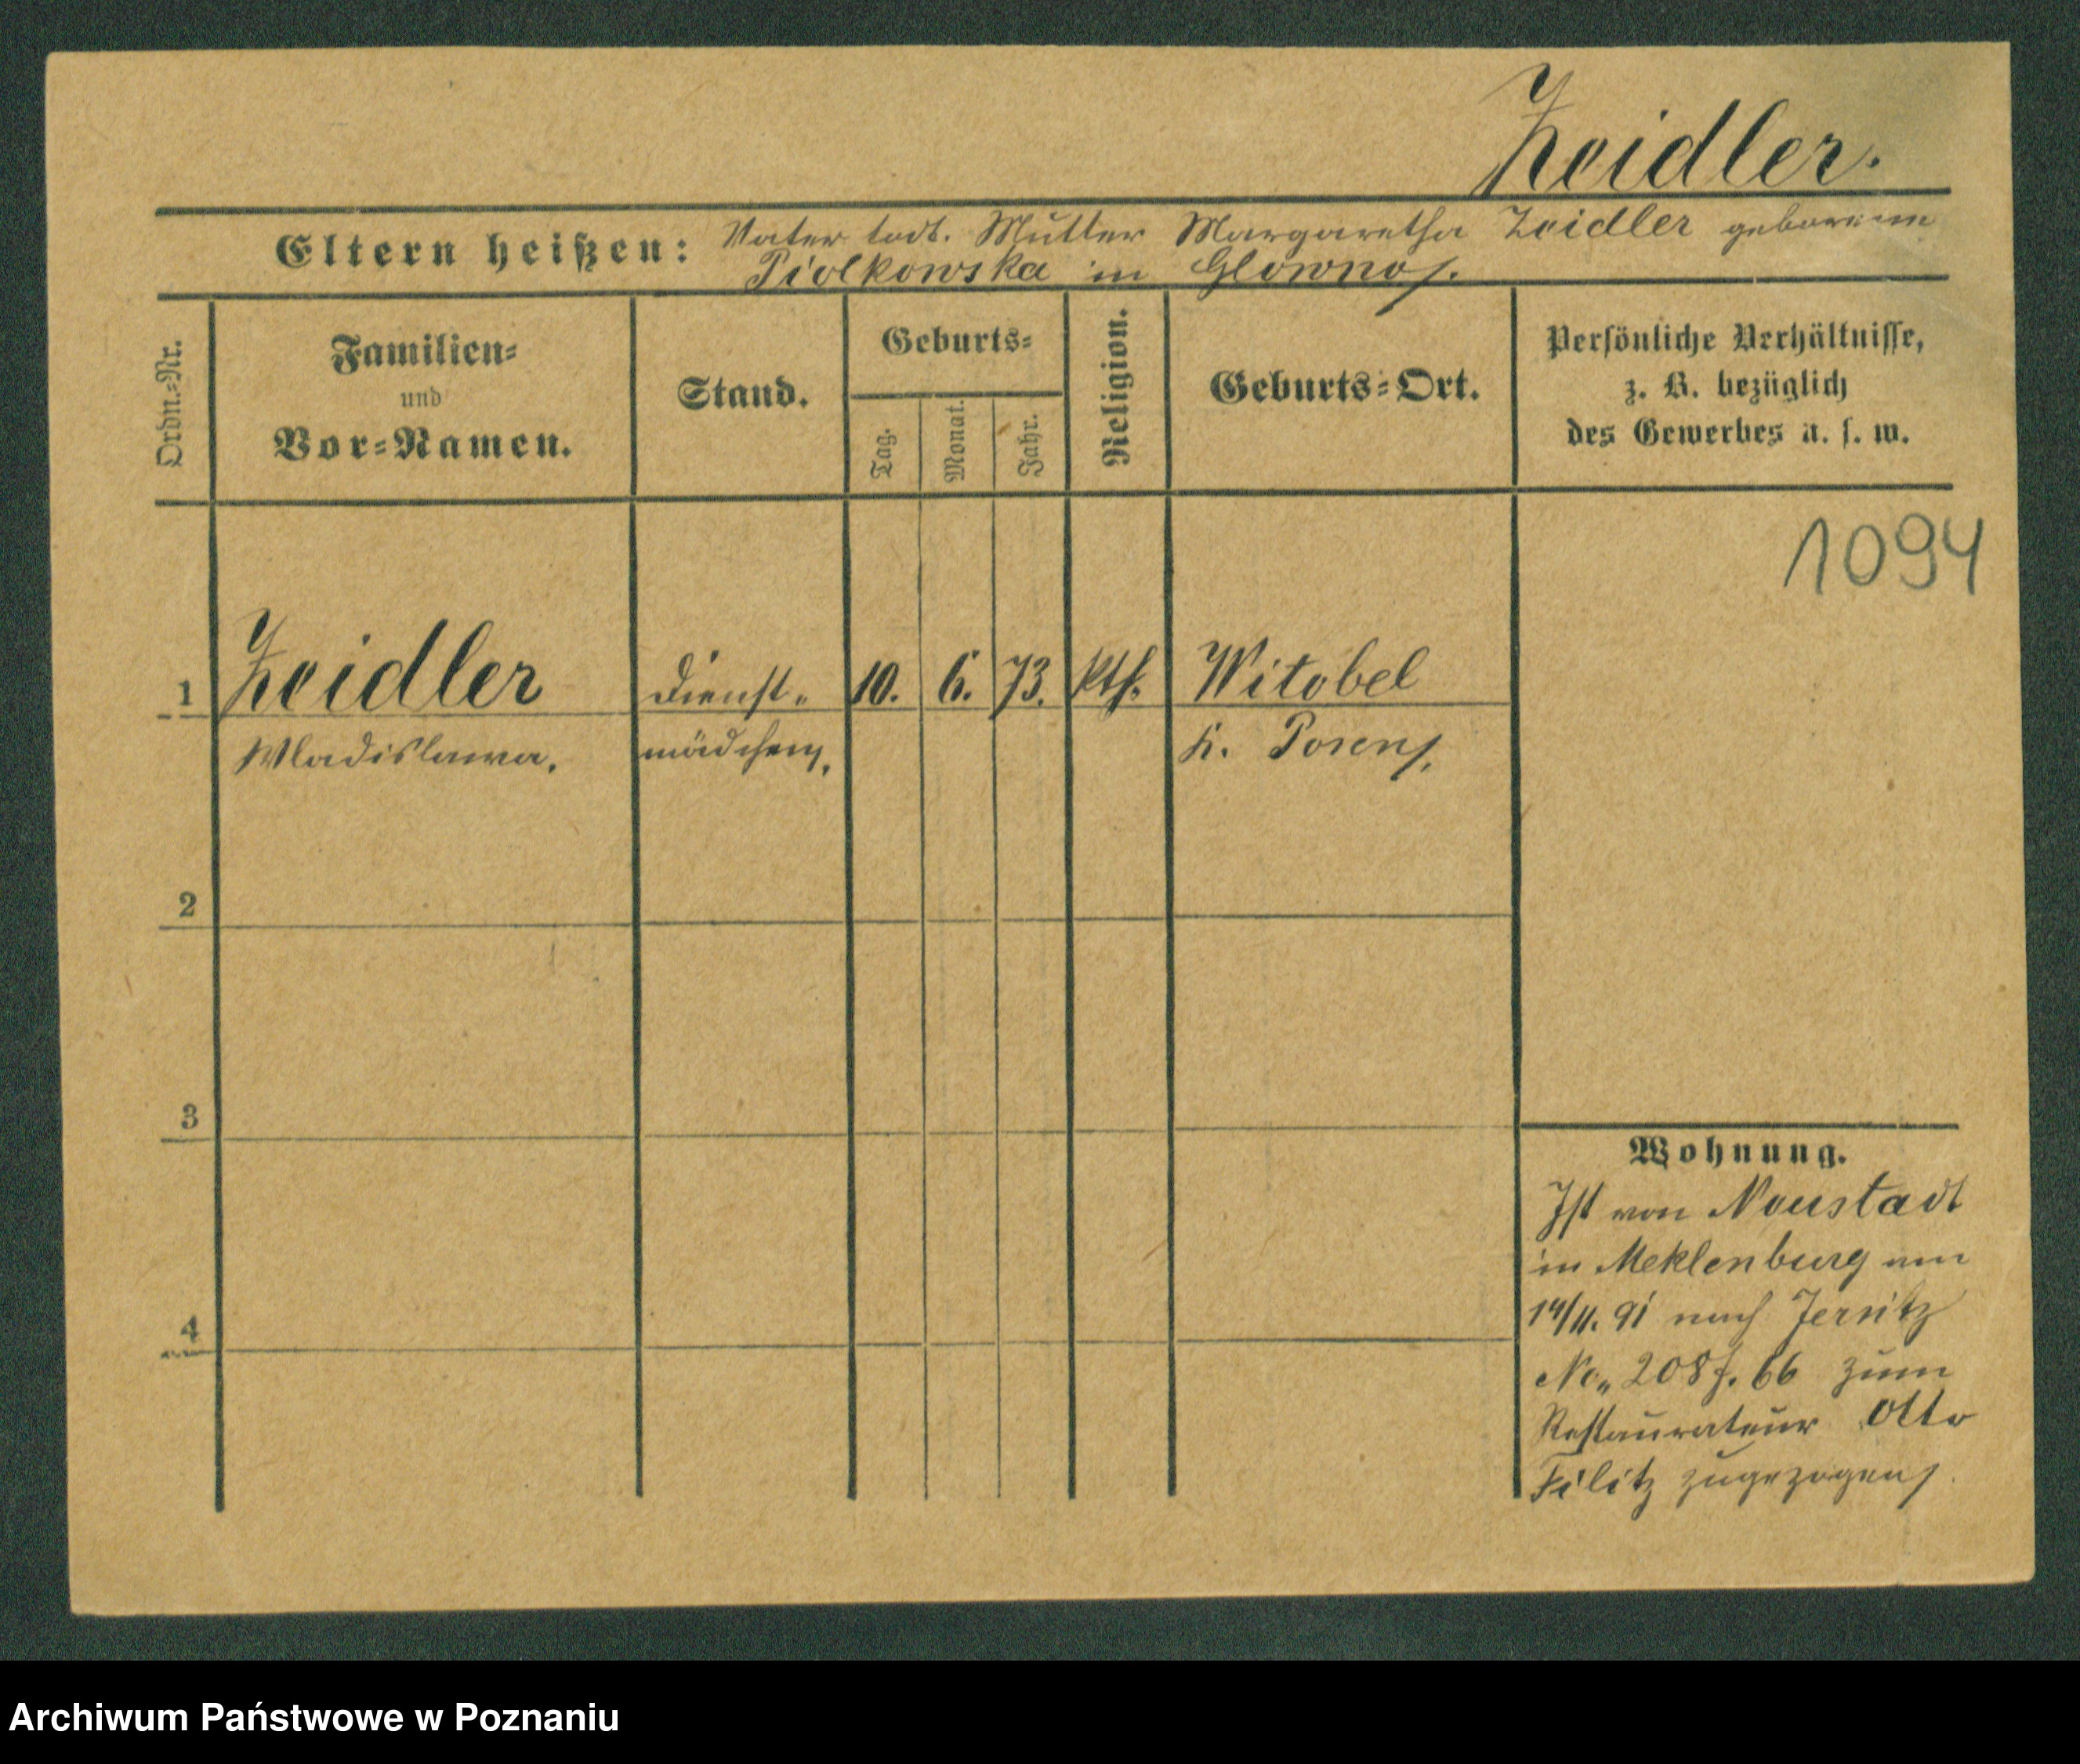 Zeidler.
Eltern heißen: Vater todt. Mutter Margaretha Zeidler geborene
Piolkowska in Glowno.
Ordn.=Nr.
Familien=
und
Vor=Namen.
Stand.
Geburts=
Tag.
Monat.
Jahr.
Religion.
Geburts=Ort.
Persönliche Verhältnisse,
z. B. bezüglich
des Gewerbes u. s. w.
1094
1 Zeidler Dienst= 10. 6. 73. kth. Witobel
Wladislawa. mädchen. K. Posen.
2
3
4
Wohnung.
Ist von Neustadt
in Meklenburg am
14/11. 91 nach Jersitz
No. 208 f. 66 zum
Restaurateur Otto
Filitz zugezogen.
Archiwum Państwowe w Poznaniu